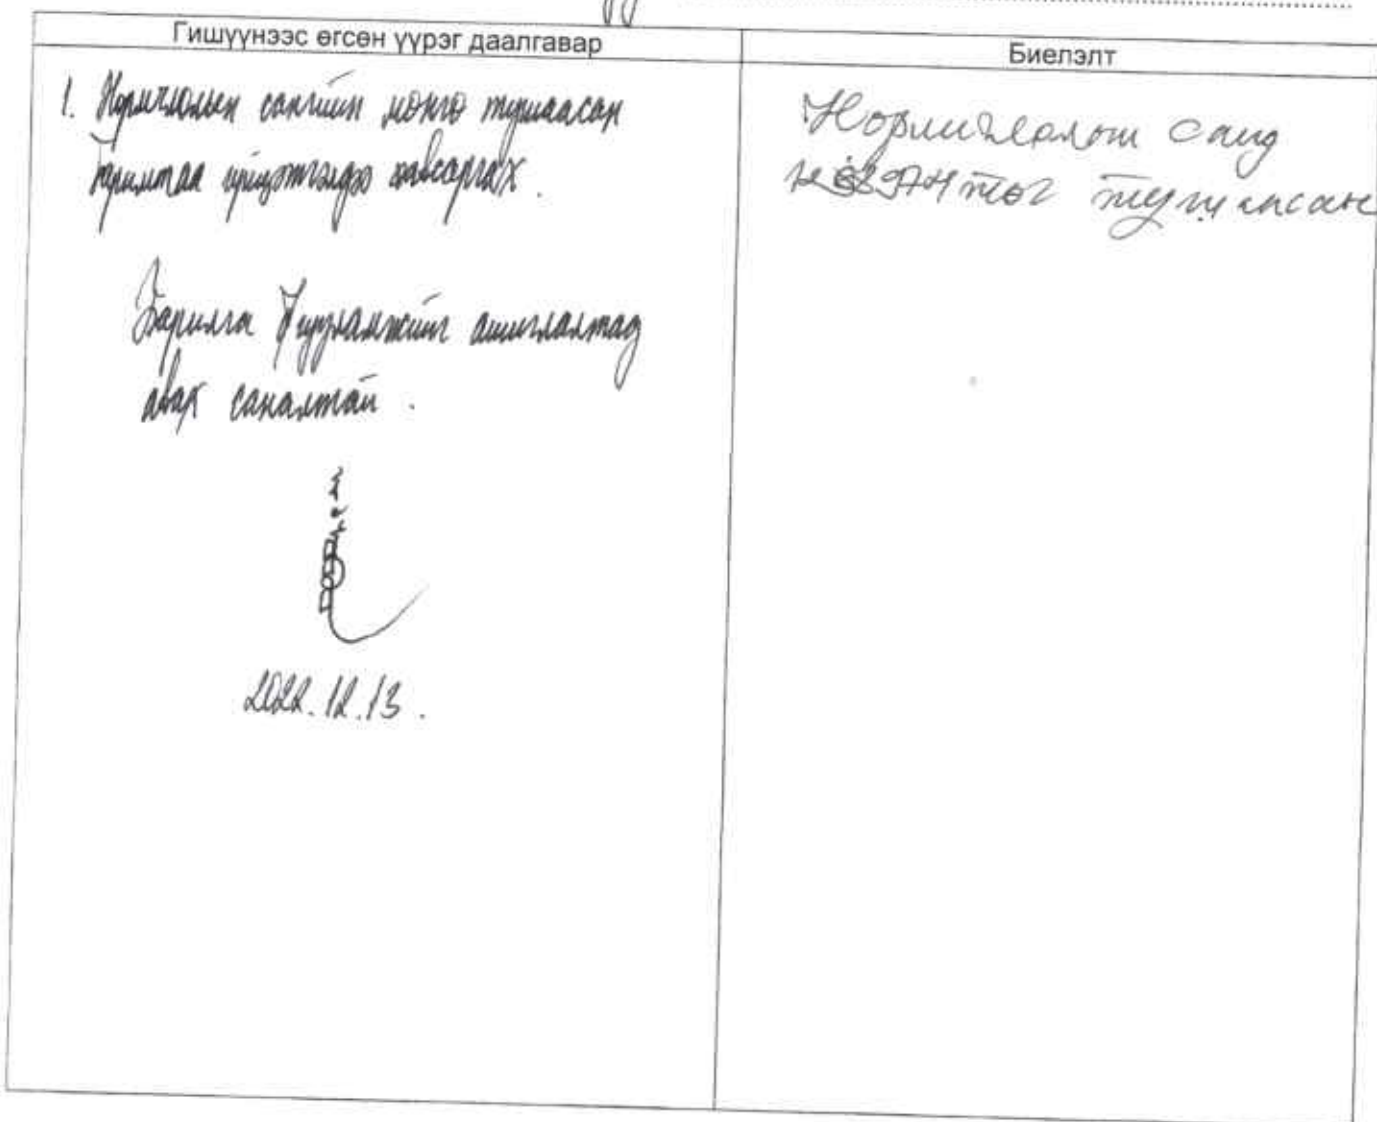 Гишүүнээс өгсөн үүрэг даалгавар
Биелэлт
1. Нормчлолын сангийн мөнгө тушаасан
баримтаа хавсаргах.
Барилга байгууламжийг ашиглалтад
авах саналтай.
2022.12.13.
Нормчлолын санд
төг тушаасан